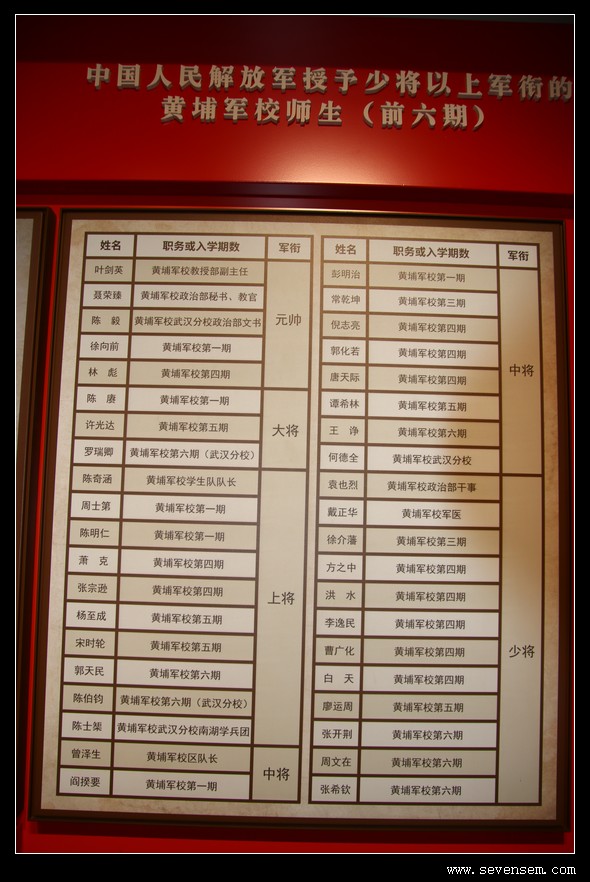 中国人民解放军授予少将以上军衔的
黄埔军校师生（前六期）
姓名 职务或入学期数 军衔
叶剑英 黄埔军校教授部副主任 元帅
聂荣臻 黄埔军校政治部秘书、教官
陈 毅 黄埔军校武汉分校政治部文书
徐向前 黄埔军校第一期
林 彪 黄埔军校第四期
陈 赓 黄埔军校第一期 大将
许光达 黄埔军校第五期
罗瑞卿 黄埔军校第六期（武汉分校）
陈奇涵 黄埔军校学生队队长 上将
周士第 黄埔军校第一期
陈明仁 黄埔军校第一期
萧 克 黄埔军校第四期
张宗逊 黄埔军校第四期
杨至成 黄埔军校第五期
宋时轮 黄埔军校第五期
郭天民 黄埔军校第六期
陈伯钧 黄埔军校第六期（武汉分校）
陈士榘 黄埔军校武汉分校南湖学兵团
曾泽生 黄埔军校区队长 中将
阎揆要 黄埔军校第一期
姓名 职务或入学期数 军衔
彭明治 黄埔军校第一期 中将
常乾坤 黄埔军校第三期
倪志亮 黄埔军校第四期
郭化若 黄埔军校第四期
唐天际 黄埔军校第四期
谭希林 黄埔军校第五期
王 诤 黄埔军校第六期
何德全 黄埔军校武汉分校
袁也烈 黄埔军校政治部干事 少将
戴正华 黄埔军校军医
徐介藩 黄埔军校第三期
方之中 黄埔军校第四期
洪 水 黄埔军校第四期
李逸民 黄埔军校第四期
曹广化 黄埔军校第四期
白 天 黄埔军校第四期
廖运周 黄埔军校第五期
张开荆 黄埔军校第六期
周文在 黄埔军校第六期
张希钦 黄埔军校第六期
www.sevensem.com